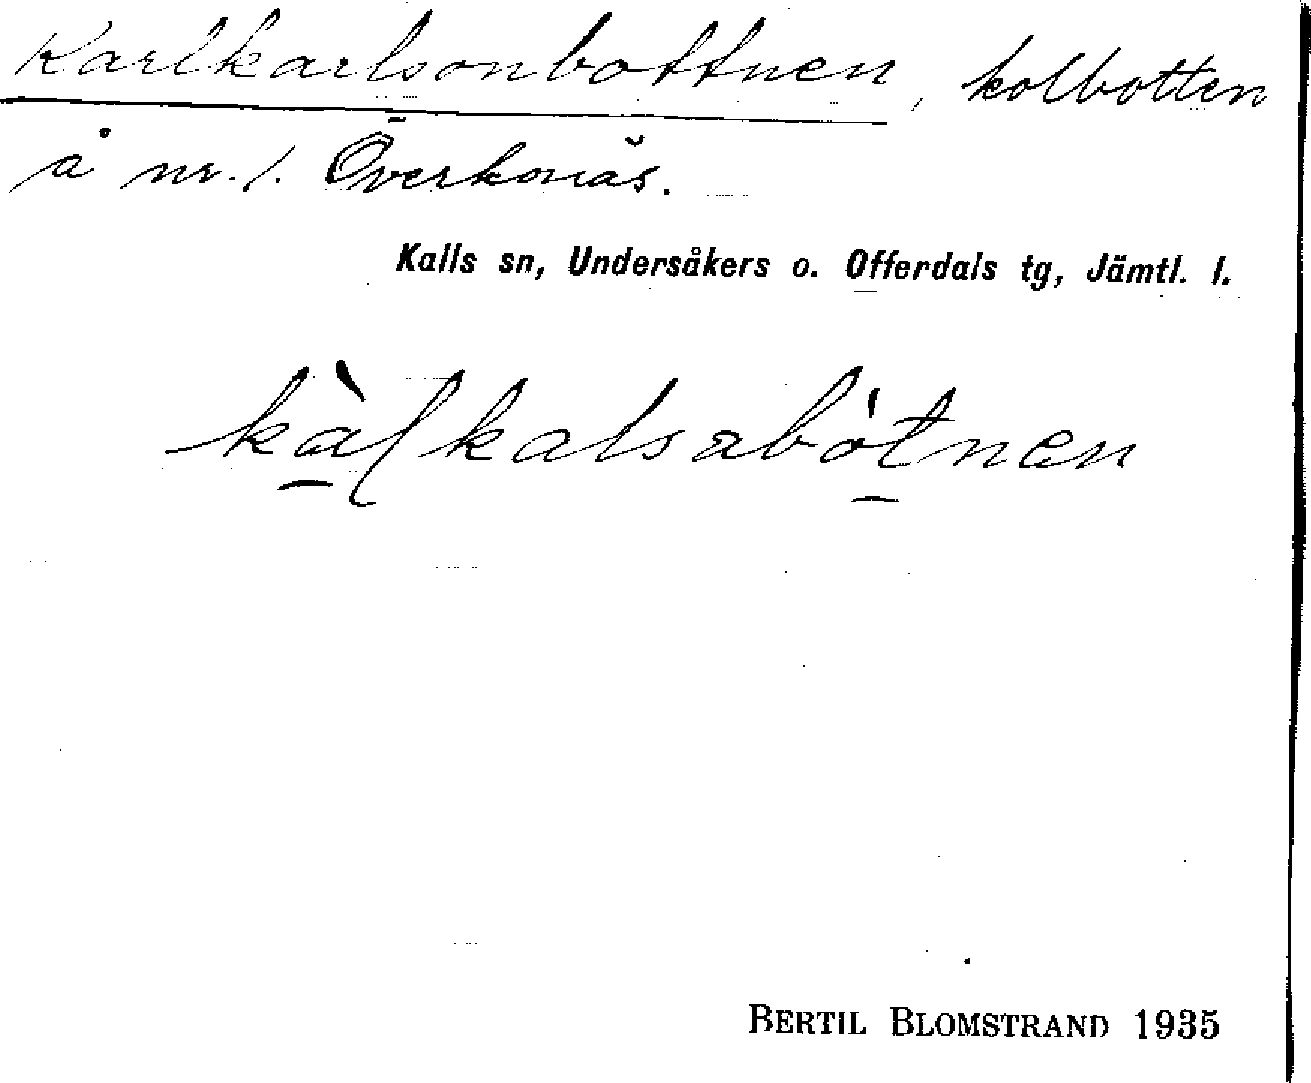 Karlkarlsonbottnen, kolbotten
å nr. 1. Överkonäs.
Kalls sn, Undersåkers o. Offerdals tg, Jämtl. l.
kàlkalsabòtnen
BERTIL BLOMSTRAND 1935